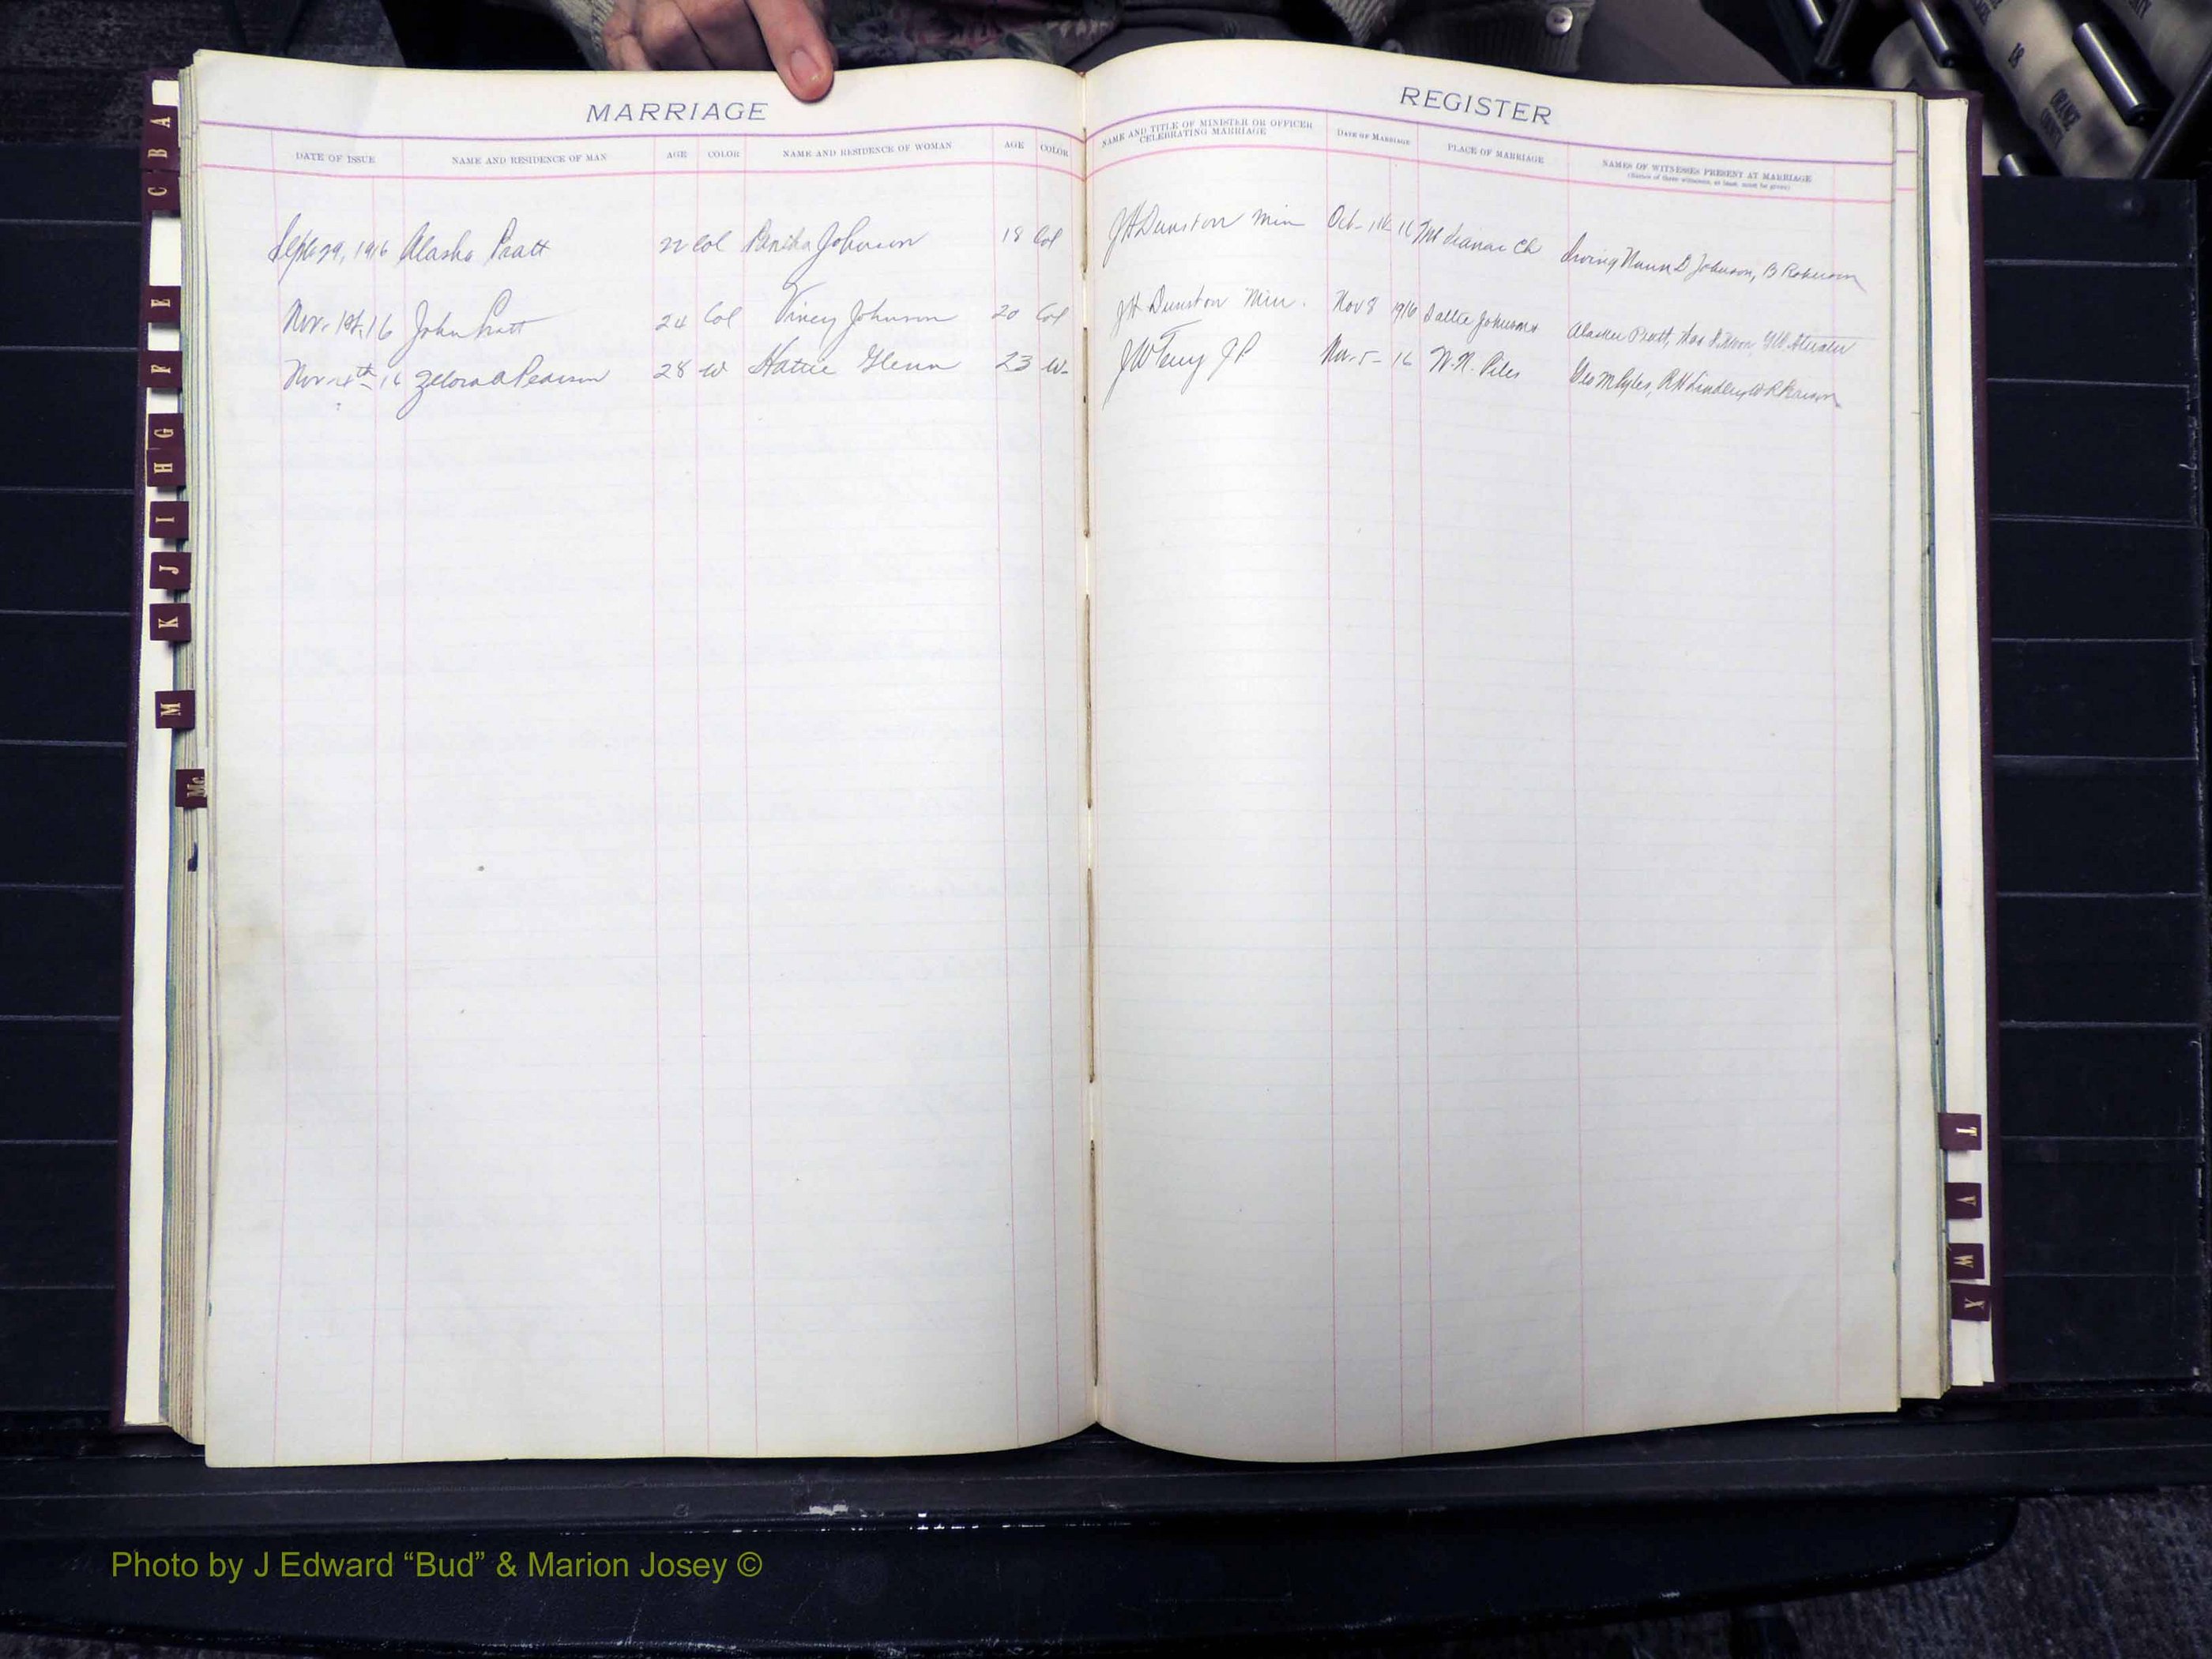 MARRIAGE
REGISTER
DATE OF ISSUE NAME AND RESIDENCE OF MAN AGE COLOR NAME AND RESIDENCE OF WOMAN AGE COLOR
NAME AND TITLE OF MINISTER OR OFFICER CELEBRATING MARRIAGE DATE OF MARRIAGE PLACE OF MARRIAGE NAMES OF WITNESSES PRESENT AT MARRIAGE
(Names of three witnesses, at least, must be given)
Sept 29, 1916 Alaska Pratt 22 Col Johnson 18 Col J H Dunston Min Oct 16 Ch Irving Nunn D Johnson, B Roberson
Nov. 1st, 16 John Pratt 24 Col Viney Johnson 20 Col J H Dunston Min. Nov 8 1916 Sallie Johnson Pratt,
Nov 4th 16 Pearson 28 W Hattie Glenn 23 W. J W Terry JP Nov. 5 - 16 W. N. Piles Geo
A
B
C
E
F
G
H
I
J
K
M
Mc
T
V
W
Y
18
ORANGE
Photo by J Edward “Bud” & Marion Josey ©